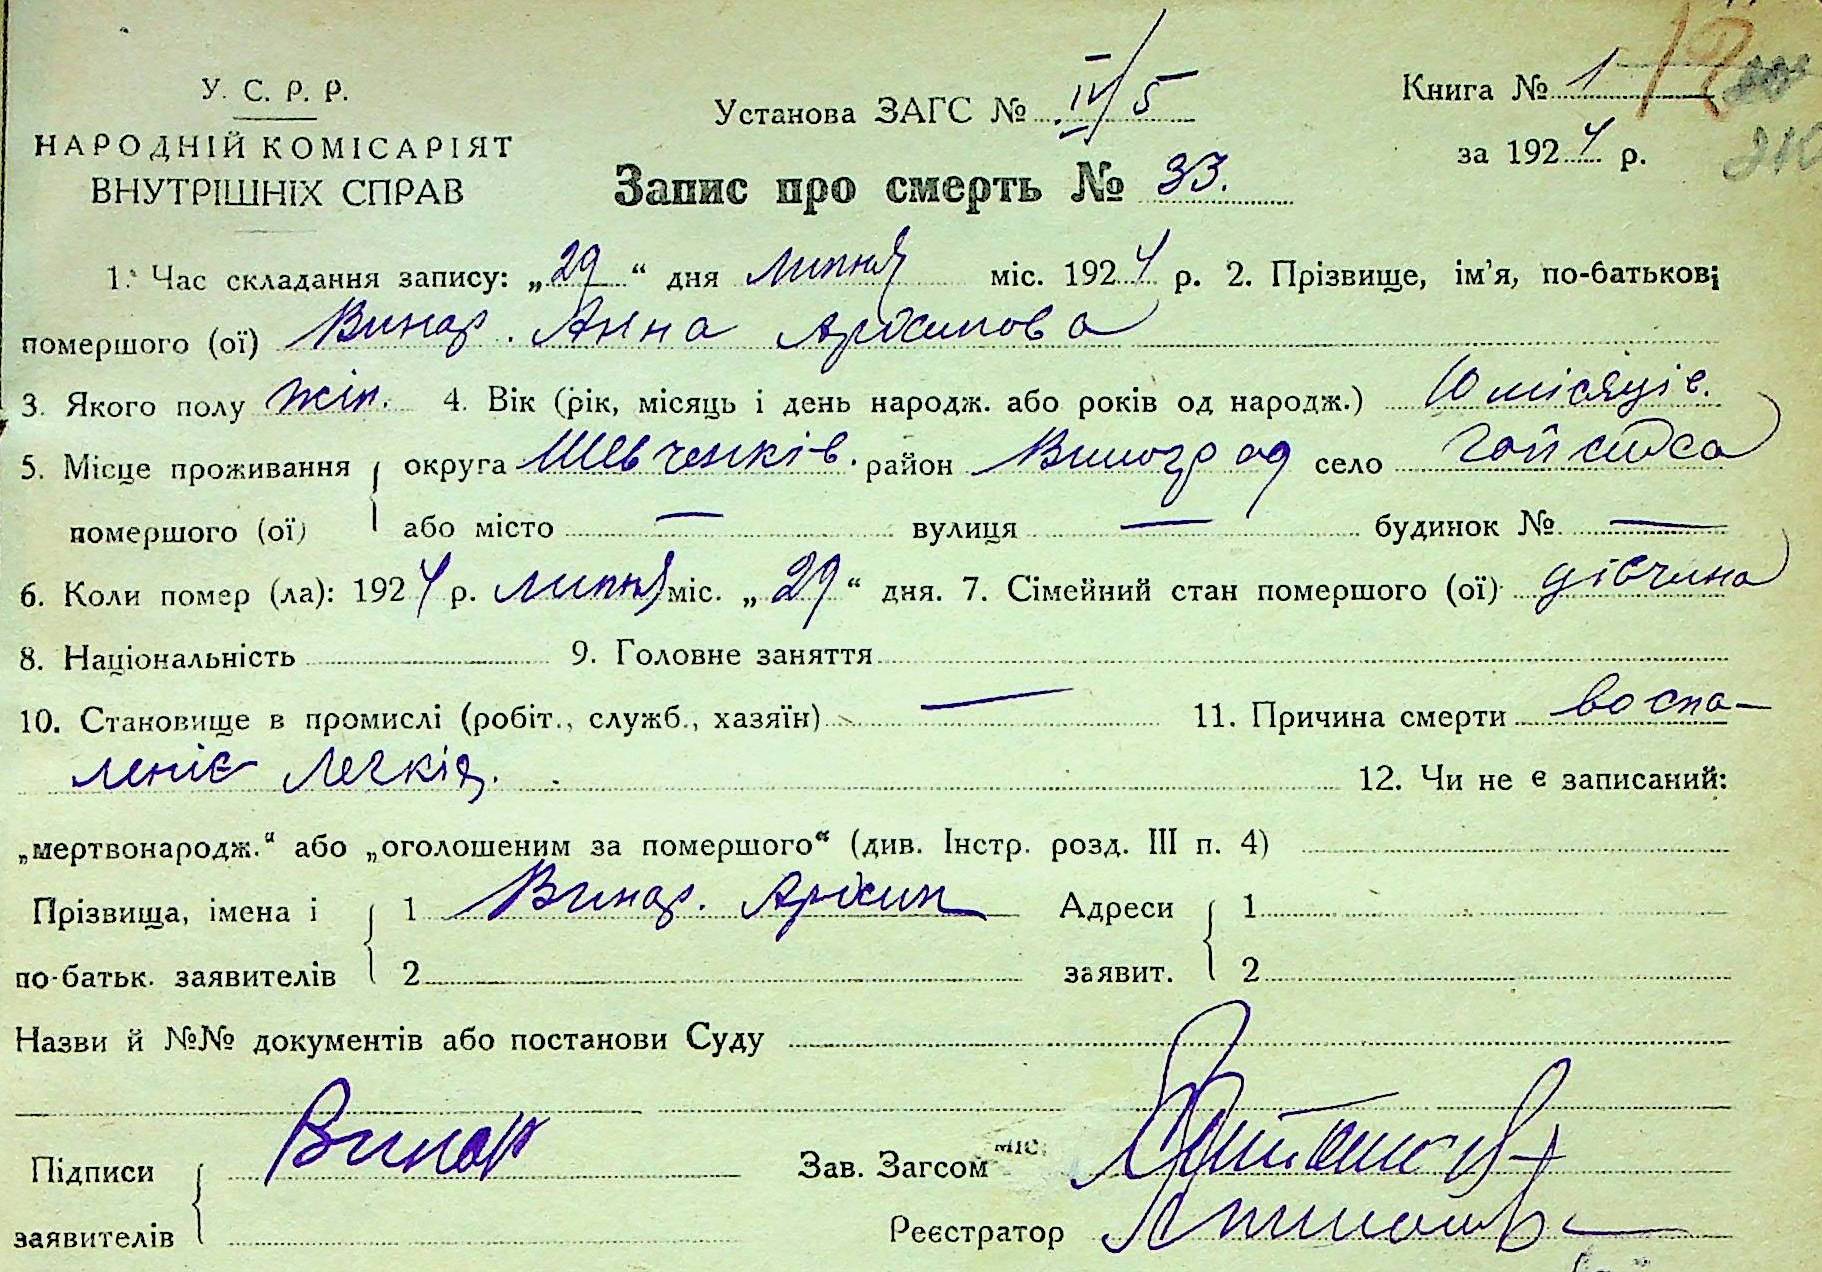 У. С. Р. Р.
НАРОДНІЙ КОМІСАРІЯТ
ВНУТРІШНІХ СПРАВ
Установа ЗАГС № IV/5
Книга № 1
за 1924 р.
210
Запис про смерть № 33.
1. Час складання запису: „29“ дня липня міс. 1924 р. 2. Прізвище, ім'я, по-батькові
помершого (ої) Винар. Анна Архипова
3. Якого полу жін. 4. Вік (рік, місяць і день народж. або років од народж.) 10 місяців.
5. Місце проживання помершого (ої) округа Шевченків. район Виноград село
або місто — вулиця — будинок № —
6. Коли помер (ла): 1924 р. липня міс. „29“ дня. 7. Сімейний стан помершого (ої) дівчина
8. Національність 9. Головне заняття
10. Становище в промислі (робіт., служб., хазяїн) — 11. Причина смерти воспа-
леніє легкія. 12. Чи не є записаний:
„мертвонародж.“ або „оголошеним за помершого“ (див. Інстр. розд. III п. 4)
Прізвища, імена і по-батьк. заявителів 1 Винар. Архип Адреси заявит. 1
2 2
Назви й №№ документів або постанови Суду
Підписи заявителів Винар Зав. Загсом
Реєстратор